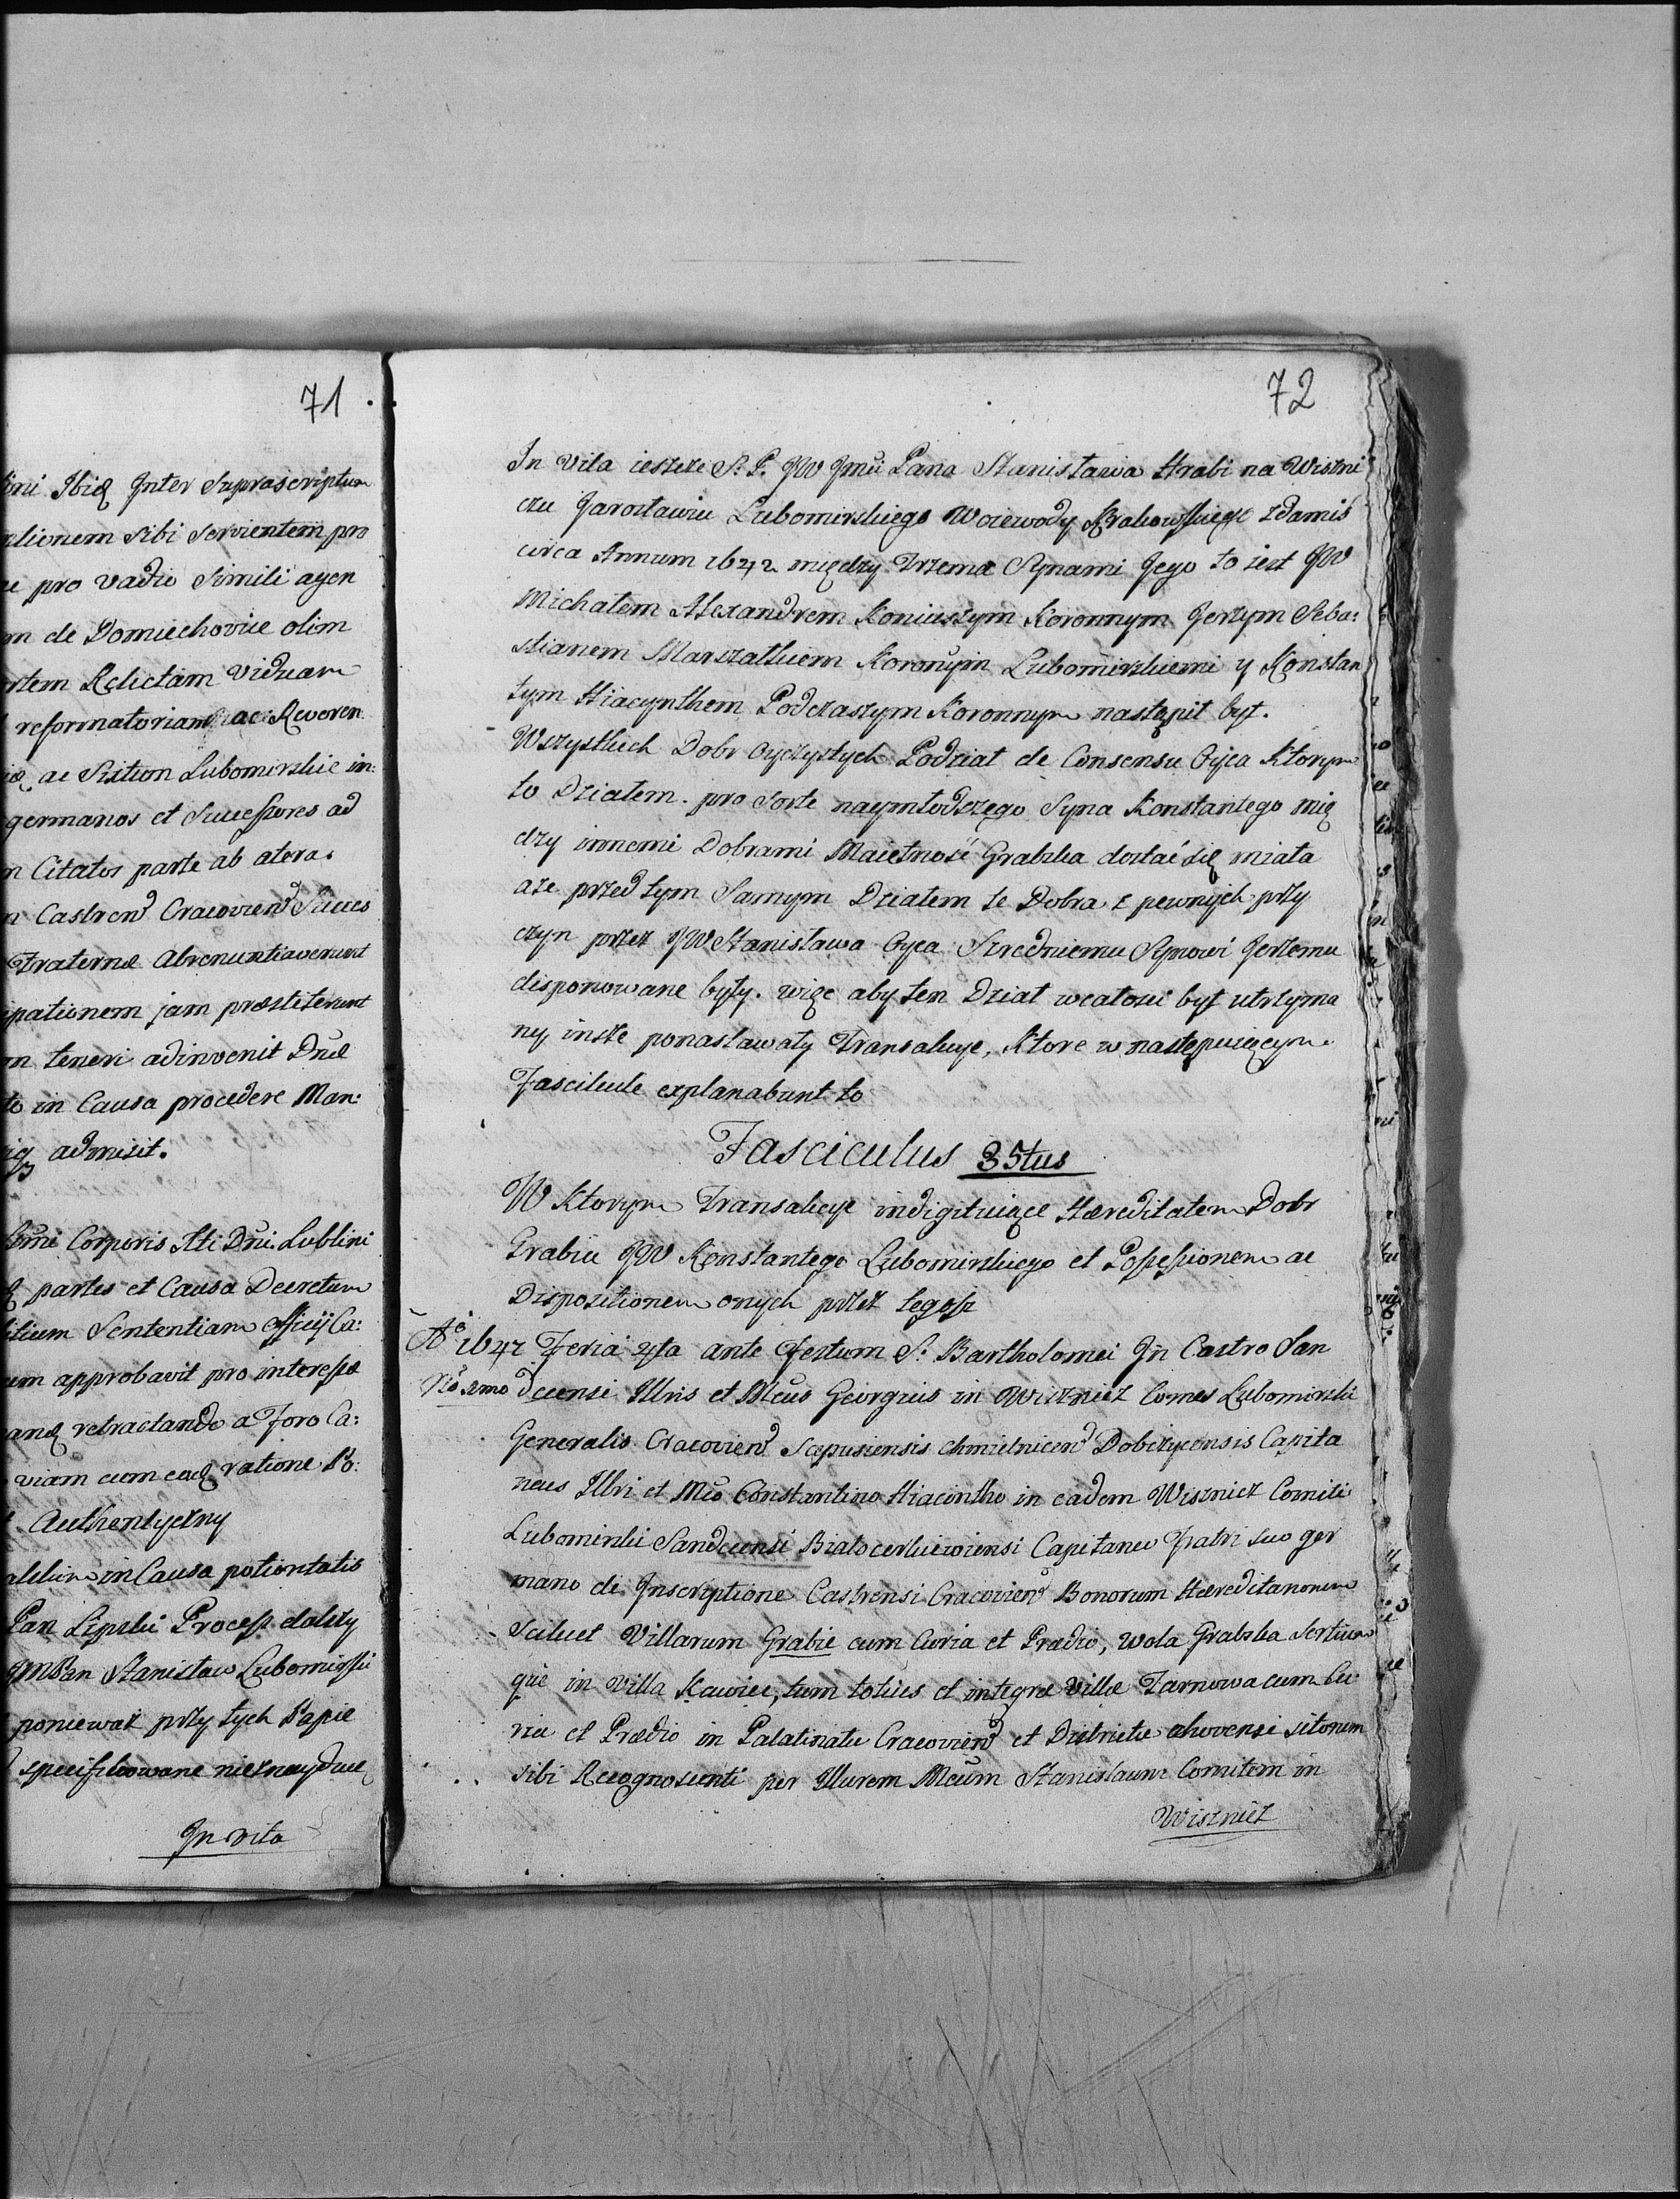 71
Ibiq Inter Suprascriptum
sibi Servientem pro
pro vadio Simili agen
de Domiechovice olim
Relictam Viduam
reformatoriam ac Reveren
ac Sition Lubomirskie in:
germanos et Successores ad
Citatos parte ab altera.
Castren Cracovien Succes
Fraternæ Abrenuntiaverunt
jam præstiterunt
teneri adinvenit Dnæ
in Causa procedere Man:
admisit.
Corporis Xti Dni. Lublini
partes et Causa Decretum
Sententiam Officij Ca:
approbavit pro interesse
retractando a Foro Ca:
viam cum eadq ratione Po:
Authentyczny
in Causa potioritatis
Pan Lipski Process dalszy
JMPan Stanisław Lubomirski
poniewaz przy tych Papie
specifikowane nieznayduię
In vita
72
In vita ieszcze S. P. JW Jmci Pana Stanisława Hrabi na Wiszni
czu Jarosławiu Lubomirskiego Woiewody Krakowskiego zdamis
circa Annum 1642 między Trzema Synami Jego to iest JW
Michałem Alexandrem Koniuszym Koronnym Jerzym Seba:
stianem Marszałkiem Koronym Lubomirskiemi y Konstan
tym Hiacynthem Podczaszym Koronnym nastąpił był.
Wszystkich Dobr Oyczystych Podział de Consensu Oyca Ktorym
to Działem. pro sorte naymłodszego Syna Konstantego mię
dzy innemi Dobrami Maiętność Grabska dostać się miała
aze przed tym Samym Działem te Dobra z pewnych przy
czyn przez JW Stanisława Oyca Szredniemu Synowi Jerzemu
disponowane były. więc aby ten Dział wcałosci był utrzyma
ny inske ponastawały Transakcye, Ktore w nastepuiącym
Fascikule explanabunt to
Fasciculus 35tus
W Ktorym Transakcye indigituiące Hæreditatem Dobr
Grabiu JW Konstantego Lubomirskiego et Possessionem ac
Dispozitionem onych przez tegosz
Ao 1647 Feria 4ta ante Festum S. Bartholomei In Castro San
No 1mo decensi Illris et Mcus Georgius in Wisznicz Comes Lubomirski
Generalis Cracovien Scepusiensis Chmielnicen Dobczycensis Capita
neus Illri et Mco Constantino Hiacintho in eadem Wisznicz Comiti
Lubomirski Sandecensi Białocerkiewiensi Capitaneo Fratri suo ger
mano de Inscriptione Castrensi Cracovien Bonorum Hæreditariorum
Scilicet Villarum Grabie cum Curia et Prædio, Wola Grabska Sortium
que in Villa Kawiec, tum totius et integræ Villæ Tarnowa cum Cu
ria et Prædio in Palatinatu Cracovien et Districtu sitorum
sibi Recognoscenti per Illurem Mcum Stanislaum Comitem in
Wisznicz